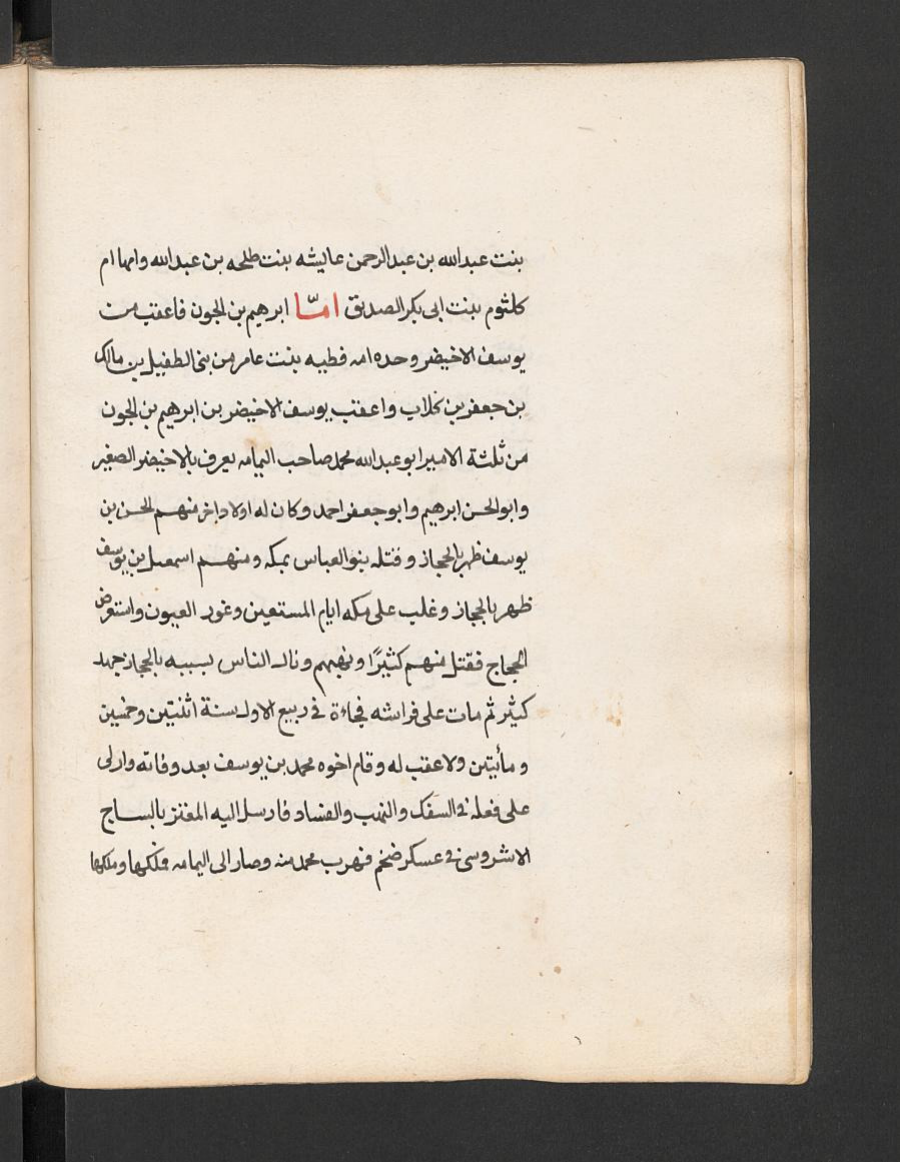 بنت عبدالله بن عبدالرحمن عايشه بنت طلحه بن عبدالله وامها ام
كلثوم بنت ابى بكر الصديق امّا ابرهيم بن الجون فاعقب من
يوسف الاخيضر وحده امه قطبيه بنت عامر من بنى الطفيل بن مالك
بن جعفر بن كلاب واعقب يوسف الاخيضر بن ابرهيم بن الجون
من ثلثة الامير ابو عبدالله محمد صاحب اليمامه يعرف بالاخيضر الصغير
وابوالحسن ابرهيم وابوجعفر احمد وكان له اولاد اخر منهم الحسن بن
يوسف ظهر بالحجاز وقتله بنوالعباس بمكه ومنهم اسمعيل بن يوسف
ظهر بالحجاز وغلب على مكه ايام المستعين وغور العيون واستعرض
الحجاج فقتل منهم كثيرًا ونهبهم ونال الناس بسببه بالحجاز جهد
كثير ثم مات على فراشه فجاءة فى ربيع الاول سنة اثنتين وخمسين
ومأيتين ولاعقب له وقام اخوه محمد بن يوسف بعد وفاته وارلى
على فعله فى السفك والنهب والفساد فارسل اليه المعتز بالساج
الاشروسى فى عسكر ضخم فهرب محمد منه وصار الى اليمامه فملكها وملكها